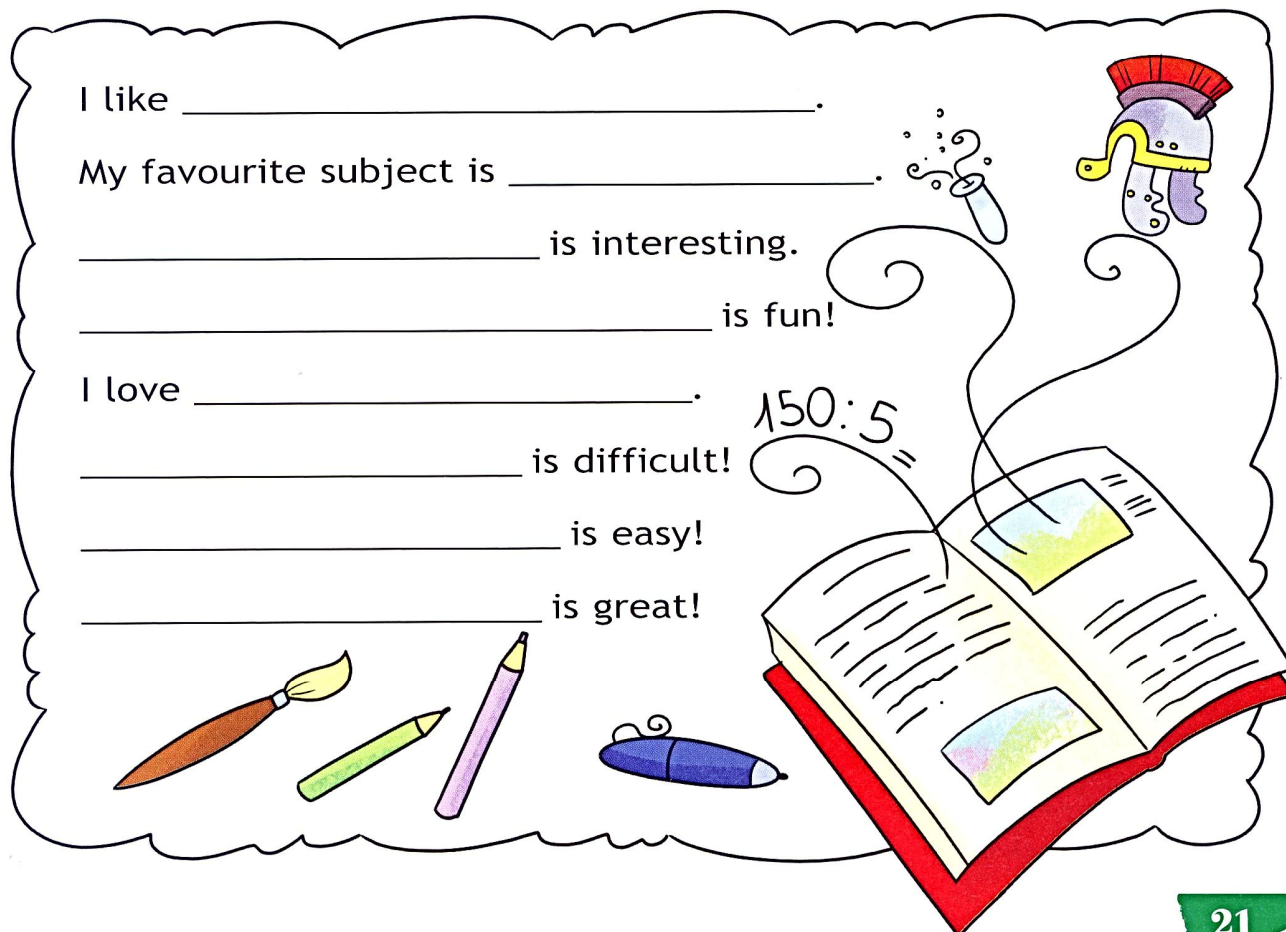 I like ______________________.
My favourite subject is ______________.
__________________ is interesting.
________________________ is fun!
I love ____________________.
150:5=
__________________ is difficult!
___________________ is easy!
__________________ is great!
21